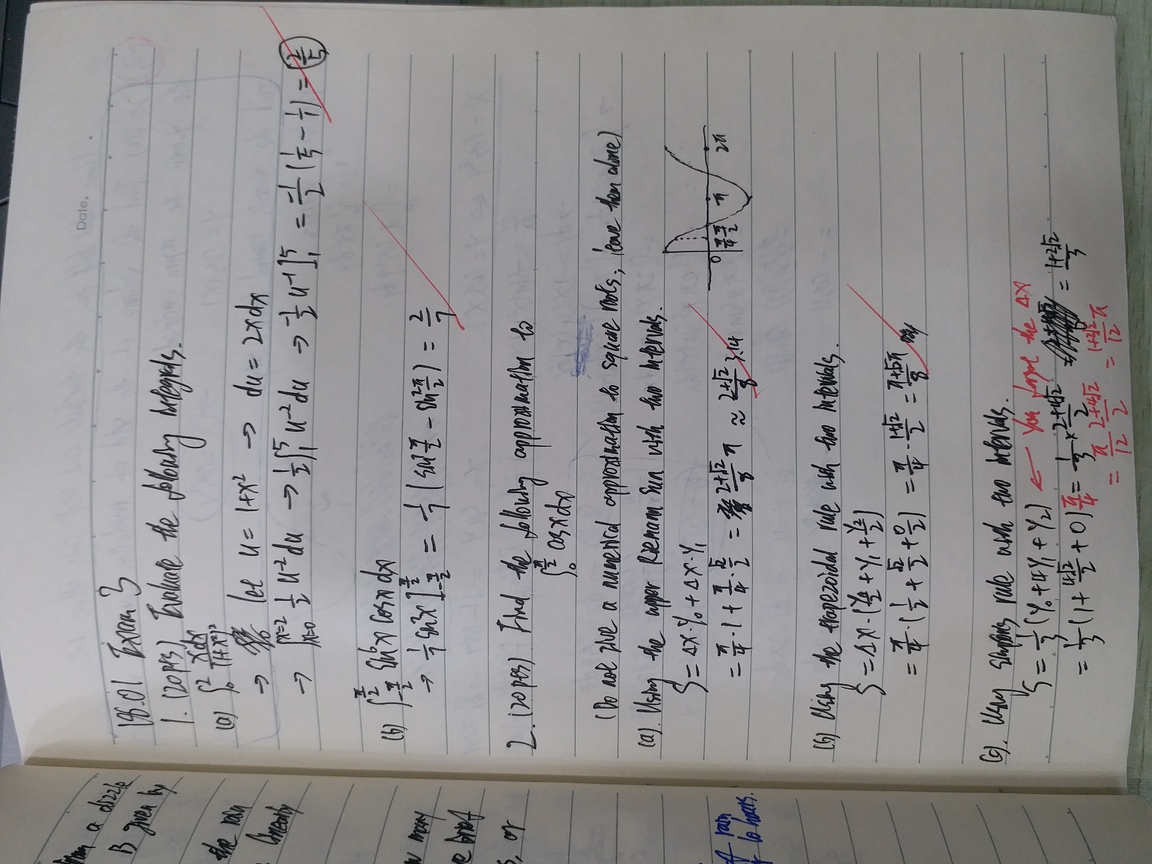 from a dizzle
B given by
the rain
linearly
how many
brief
s, or
of rain
10 hours.
Date.
18.01 Exam 3
1. (20pts) Evaluate the following integrals.
(a) ∫₀² xdx/(1+x²)²
→ let u = 1+x² → du = 2xdx
→ ∫_{x=0}^{x=2} 1/2 u⁻² du → 1/2 ∫₁⁵ u⁻² du → -1/2 u⁻¹]₁⁵ = -1/2 (1/5 - 1/1) = 2/5
(b) ∫_{-π/2}^{π/2} sin⁶x cosx dx
→ 1/7 sin⁷x]_{-π/2}^{π/2} = 1/7 (sin⁷ π/2 - sin⁷ -π/2) = 2/7
2. (20pts) Find the following approximation to
∫₀^{π/2} cosxdx
(Do not give a numerical approximation to square roots; leave them alone)
(a). Using the upper Riemann Sun with two intervals.
S = Δx·y₀ + Δx·y₁
= π/4·1 + π/4·√2/2 = (2+√2)/8 π ≈ (2+√2)/8 3.14
0 π/4 π/2 π 2π
(b) Using the trapezoidal rule with two intervals.
S = Δx·(y₀/2 + y₁ + y₂/2)
= π/4·(1/2 + √2/2 + 0/2) = π/4·(1+√2)/2 = (π+√2π)/8
(c). Using simpson's rule with two intervals.
S = 1/3 (y₀ + 4y₁ + y₂) ← You forgot the Δx
= 1/3 (1 + 4√2/2 + 0) π/4 = 1/3 × (2+4√2)/2 = (1+2√2)/3
= π/12 (2+4√2)/2 = (1+2√2)/12 π